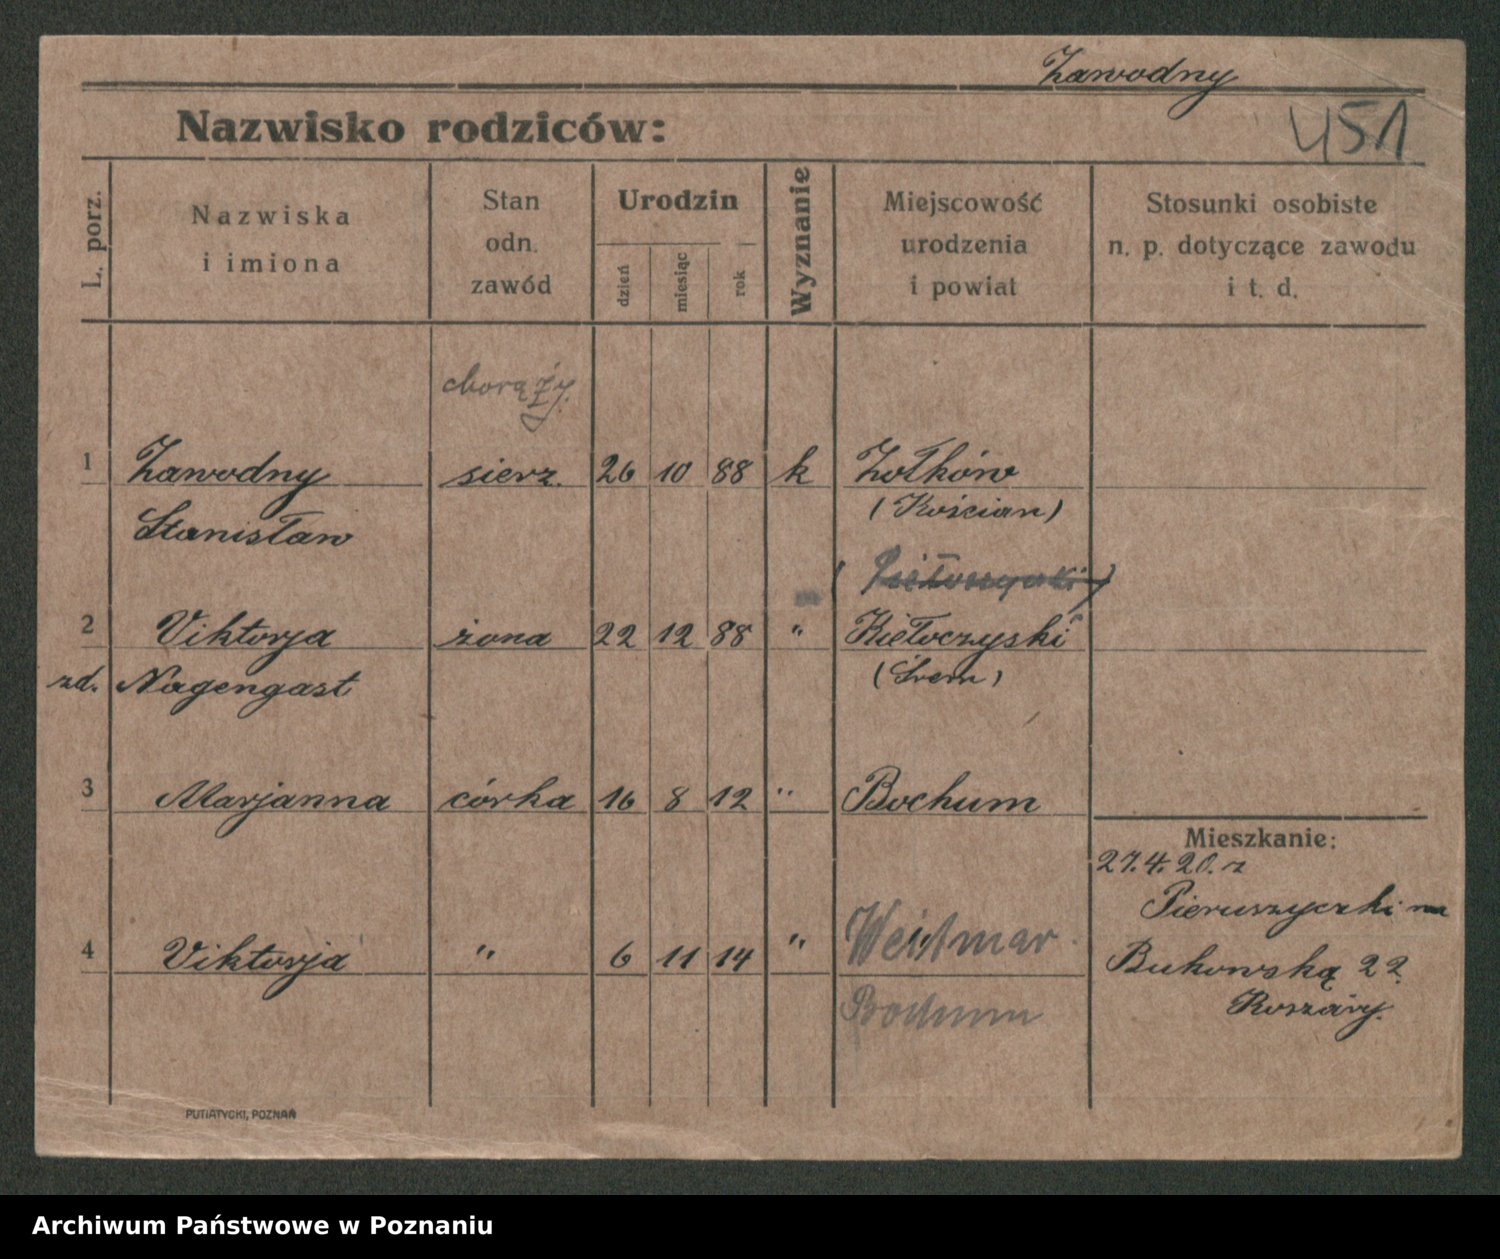 Zawodny
Nazwisko rodziców:
451
L. porz.
Nazwiska
i imiona
Stan
odn.
zawód
Urodzin
dzień
miesiąc
rok
Wyznanie
Miejscowość
urodzenia
i powiat
Stosunki osobiste
n. p. dotyczące zawodu
i t. d.
chorąży
1 Zawodny sierz. 26 10 88 k Żołków
Stanisław (Kościan)
2 Viktorja żona 22 12 88 " Kiełoczyski
zd. Nagengast (Śrem)
3 Marjanna córka 16 8 12 " Bochum
Mieszkanie:
27.4.20. z
Pieruszyczki na
4 Viktorja " 6 11 14 " Weitmar
Bukowską 22
Bochum
Koszary.
PUTIATYCKI, POZNAŃ
Archiwum Państwowe w Poznaniu